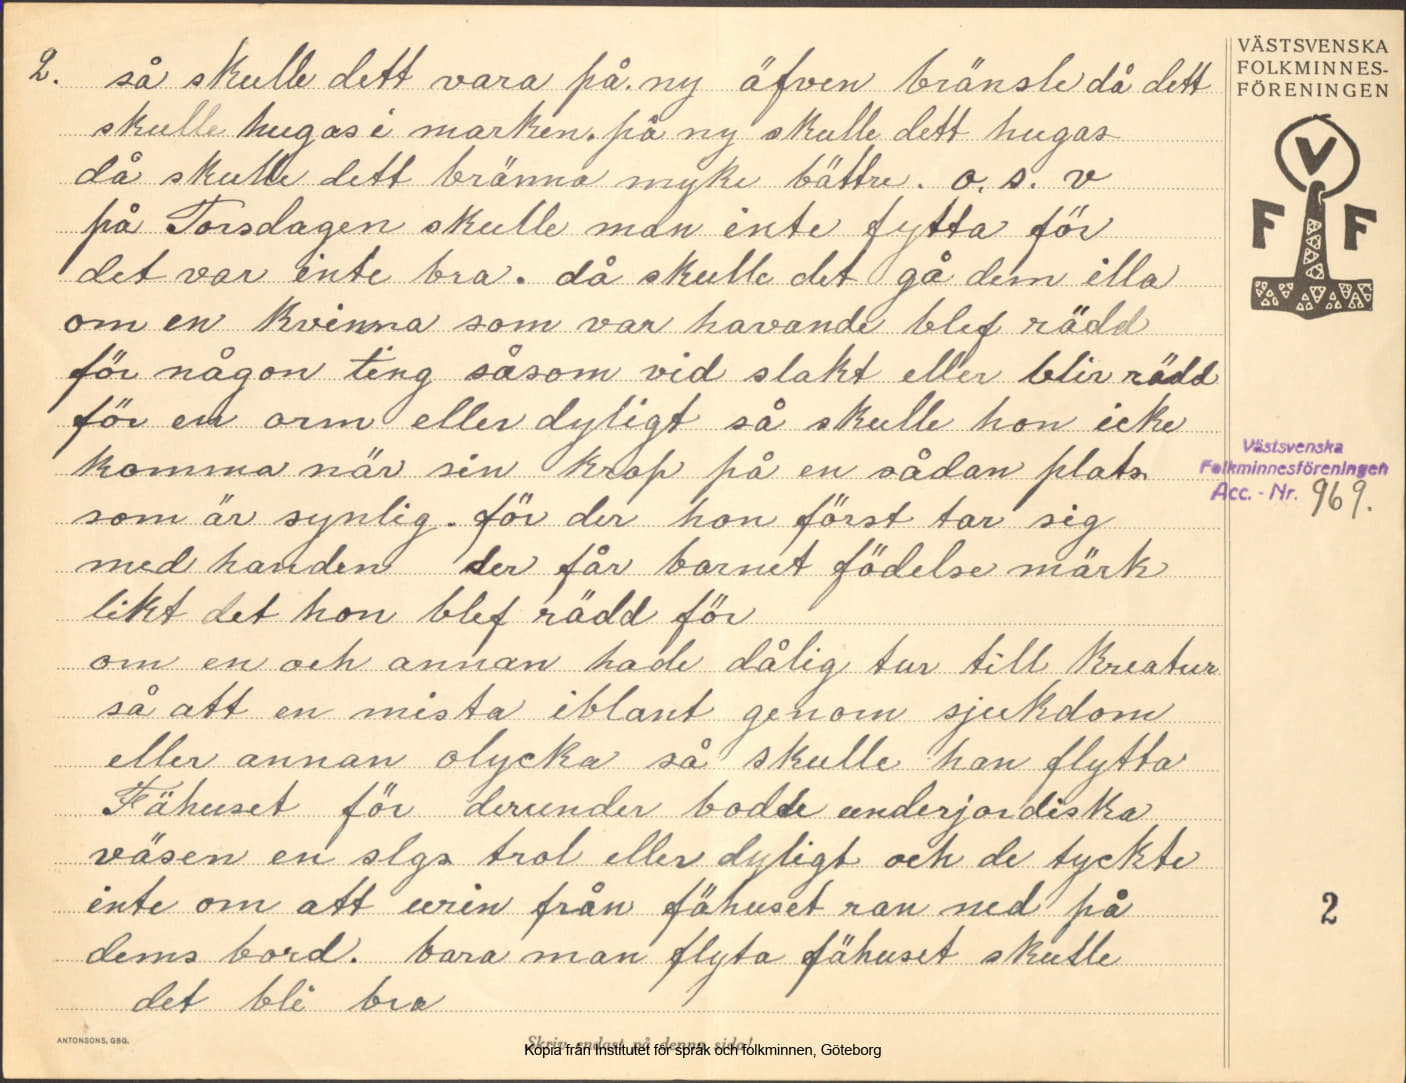 2. så skulle dett vara på. ny äfven bränsle då dett
skulle hugas i marken. på ny skulle dett hugas
då skulle dett bränna myke bättre. o. s. v
på Torsdagen skulle man inte fytta för
det var inte bra. då skulle det gå dem illa
om en kvinna som var havande blef rädd
för någon ting såsom vid slakt eller blir rädd
för en orm eller dyligt så skulle hon icke
komma när sin krop på en sådan plats
som är synlig. för der hon först tar sig
med handen der får barnet födelse märk
likt det hon blef rädd för
om en och annan hade dålig tur till kreatur
så att en mista iblant genom sjukdom
eller annan olycka så skulle han flytta
Fähuset för derunder bodde underjordiska
väsen en slgs trol eller dyligt och de tyckte
inte om att urin från fähuset ran ned på
dems bord. bara man flyta fähuset skulle
det bli bra
VÄSTSVENSKA
FOLKMINNES-
FÖRENINGEN
V
F F
Västsvenska
Folkminnesföreningen
Acc. - Nr. 969.
2
ANTONSONS, GBG.
Skriv endast på denna sida!
Kopia från Institutet för språk och folkminnen, Göteborg